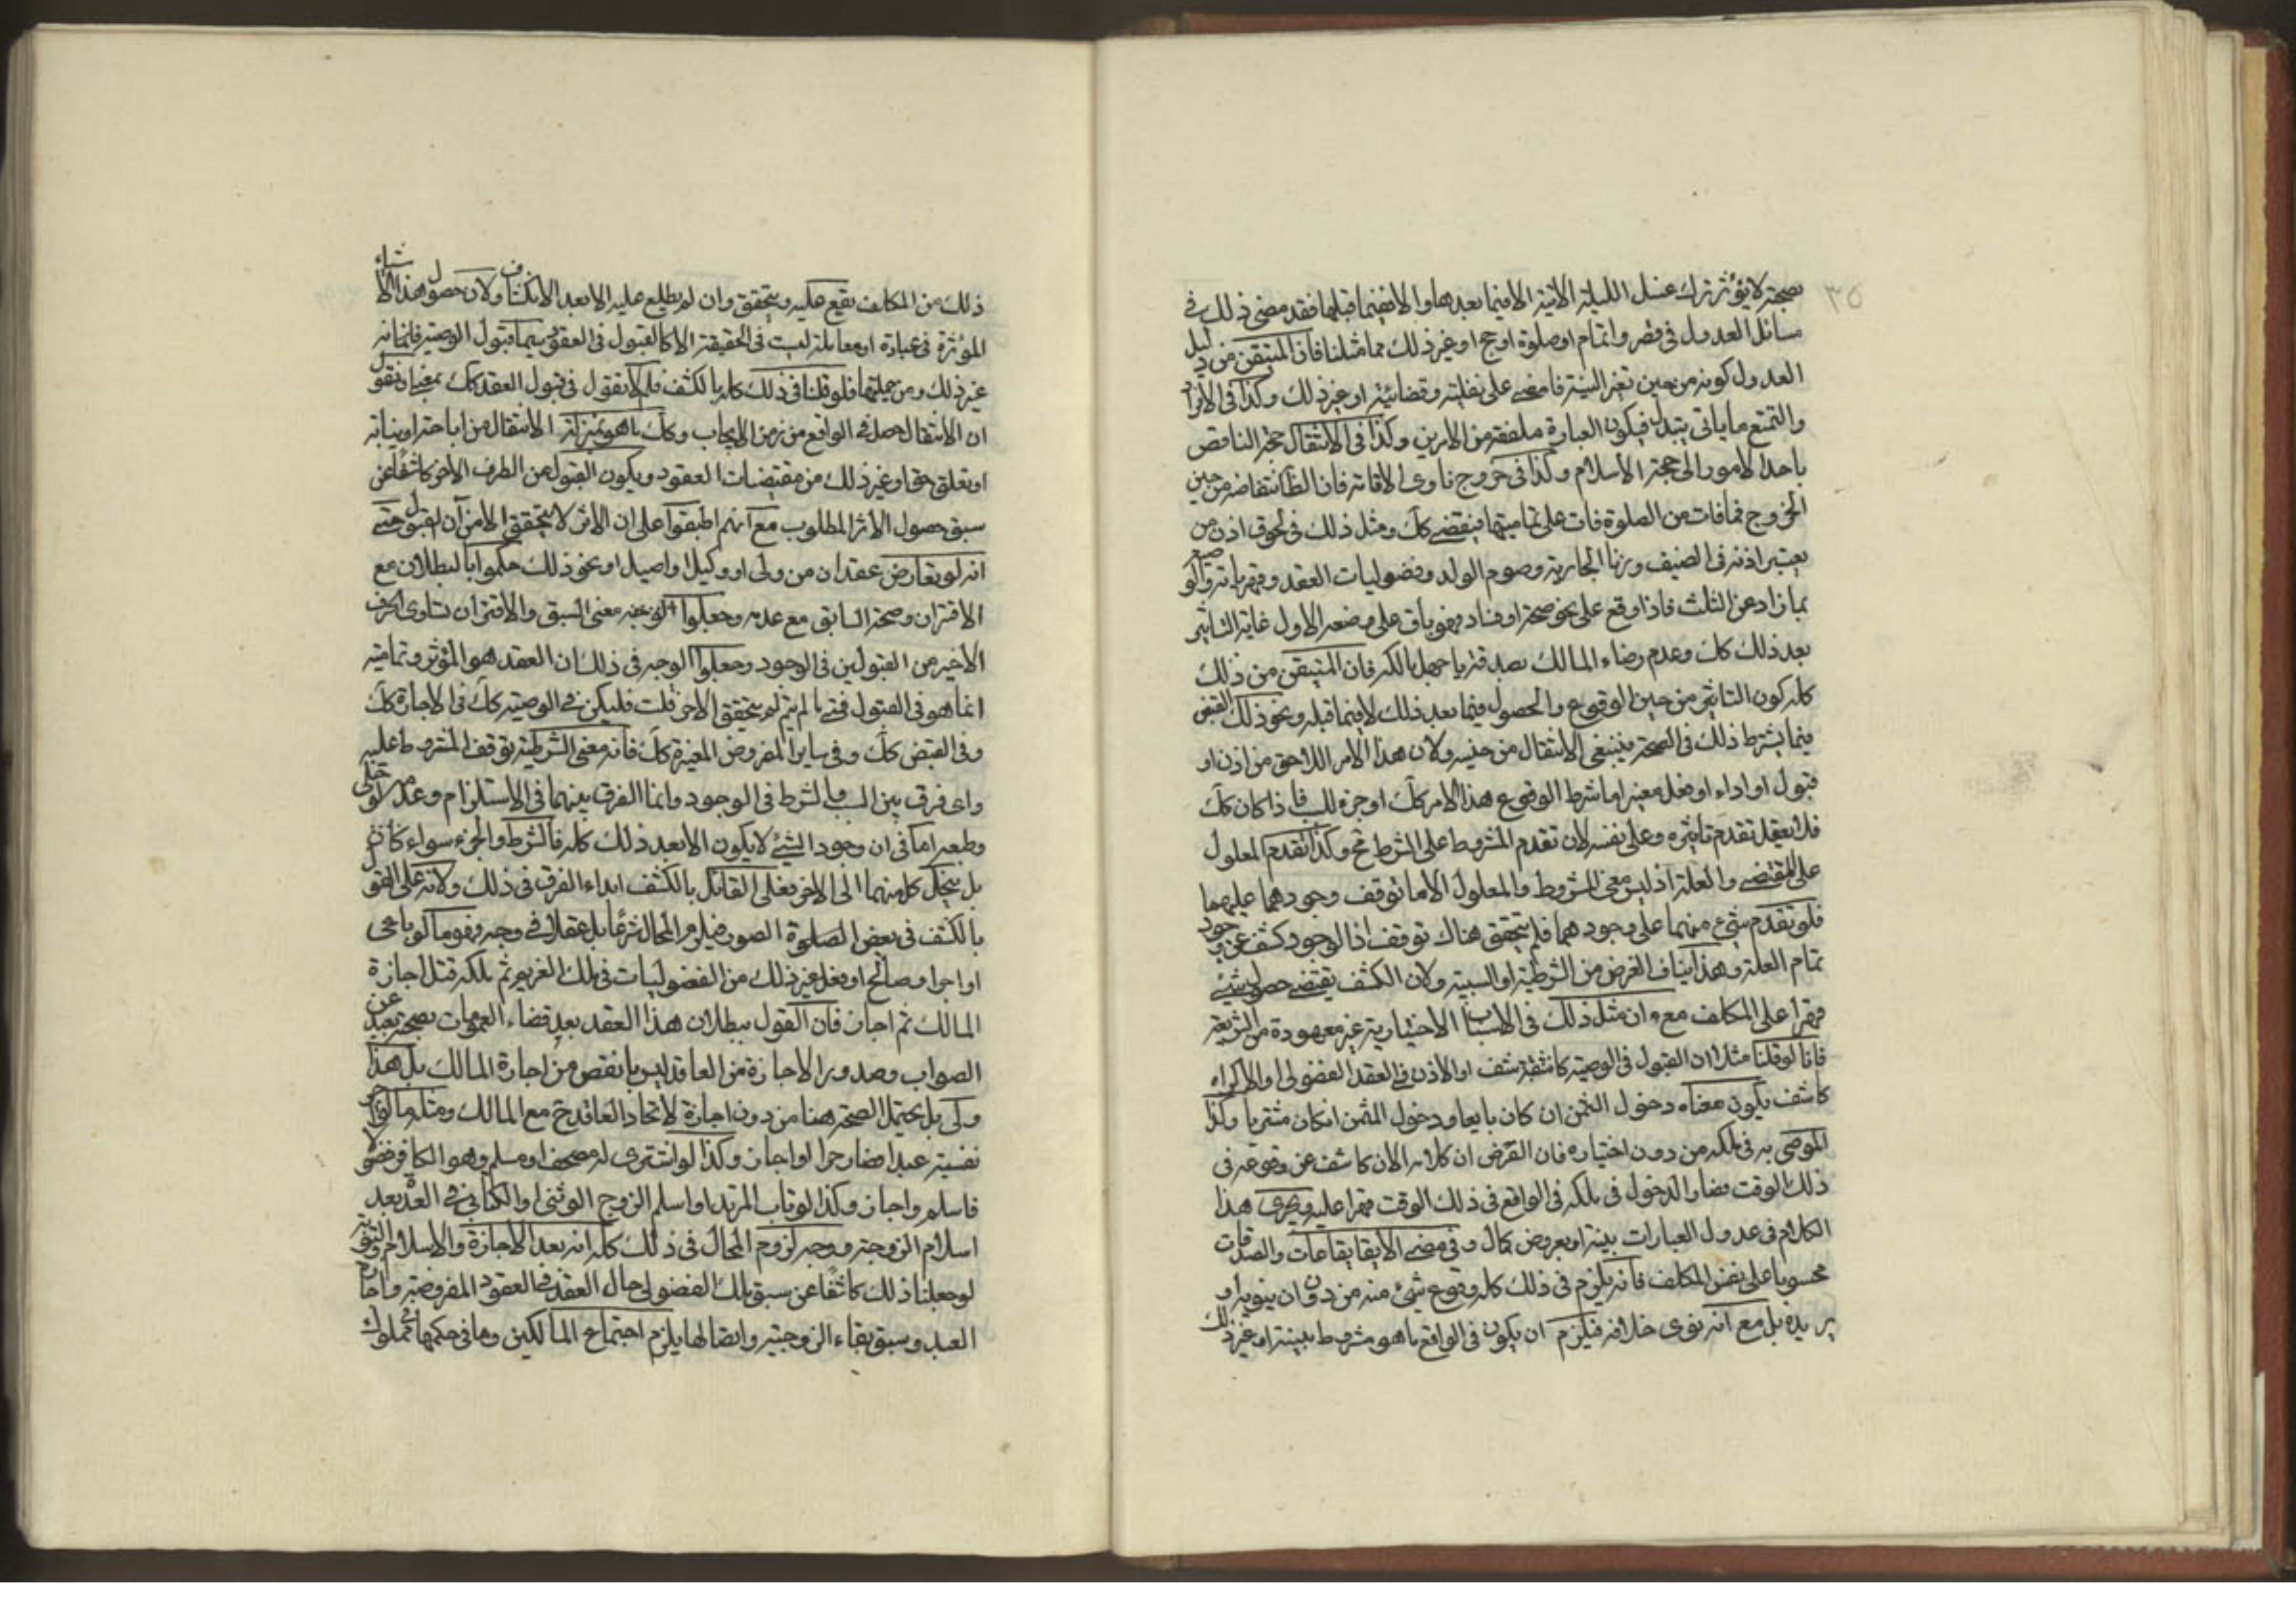 ٣٥
بصحته لا يؤثر ترك غسل الليلة الاتية الا فيما بعدها والا ففيما قبلها فقد مضى ذلك في
مسائل العدول في قصر واتمام او صلوة او حج او غير ذلك مما مثلنا فان المتيقن من دليل
العدول كونه من حين تغير النية فامضى على نفليته وقضائيته او غير ذلك وكذا في الافراد
والتمتع ما ياتي يتبدل فيكون العبارة ملفقة من الامرين وكذا في الانتقال حجة الناقص
باحد الامور الى حجة الاسلام وكذا في خروج ناوى الاقامة فان الظ انتقاضه من حين
الخروج فما فات من الصلوة فات على تماميتها فيقضى كك ومثل ذلك في لحوق اذن من
يعتبر اذنه في الضيف وزنا الجارية وصوم الولد وفضوليات العقد وقهرياته والوصيع
بما زاد عن الثلث فاذا وقع على نحو صحة او فساد فهو باق على وضعه الاول غاية التاثير
بعد ذلك كك وعدم رضاء المالك بصدقة يا جهل بالكر فان المتيقن من ذلك
كله كون التاثير من حين الوقوع والحصول فيما بعد ذلك لا فيما قبله ونحو ذلك القبض
فيما يشترط ذلك في الصحة فينبغى الانتقال من حينه ولان هذا الامر اللاحق من اذن او
قبول او اداء او فعل معتبر اما شرط الوقوع هذا الامر كك او جزء للسبب فاذا كان كك
فلا يعقل تقدم تاثيره وعلى نفسه لان تقدم المشروط على الشرط مح وكذا تقدم المعلول
على المقتضى والعلة اذ ليس معنى المشروط والمعلول الا ما توقف وجودهما عليهما
فلو تقدم شيء منهما على وجودهما فلم يتحقق هناك توقف اذ الوجود كشف عن وجود
تمام العلة وهذا ينافي الفرض من الشرطية او السببية ولان الكشف يقتضى حصول شيئ
قهرا على المكلف مع وان مثل ذلك في الاسباب الاختيارية غير معهودة من الشريعة
فانا لو قلنا مثلا ان القبول في الوصية كاشف او الاذن في العقد الفضولى او الاكراه
كاشف يكون معناه دخول الثمن ان كان بايعا ودخول المثمن انكان مشتريا وكذا
الموصى به في ملكه من دون اختياره فان الفرض ان كلامه الان كاشف عن وقوعه في
ذلك الوقت فصار الدخول في ملكه في الواقع في ذلك الوقت قهرا عليه ويجرى هذا
الكلام في عدول العبارات بنية او بعروض كمال وفي مضى الايقاعات والصدقات
محسوبا على نفس المكلف فانه يلزم في ذلك كله وقوع شيئ منه من دون ان ينويه او
يريده بل مع انه نوى خلافه فيلزم ان يكون في الواقع ما هو مشروط بنية او غير ذلك
ذلك من المكلف يقع عليه ويتحقق وان لم يطلع عليه الا بعد الانكشاف ولان حصول هذه الاشياء
المؤثرة في عبادة او معاملة ليست في الحقيقة الا كالقبول في العقود سيما قبول الوصية فانما انه
غير ذلك ومن جملتها فلو قلنا في ذلك كله بالكشف فلم لا يقول في قبول العقد كك بمعنى ان نقول
ان الانتقال حصل في الواقع من زمن الايجاب وكك ما هو بمنزلة الانتقال من اباحة او نيابة
او تعلق حق او غير ذلك من مقتضيات العقود ويكون القبول من الطرف الاخر كاشفا عن
سبق حصول الاثر المطلوب مع انهم اطبقوا على ان الاثر لا يتحقق الا من آن القبول حتى
انه لو تعارض عقدان من ولى او وكيل او اصيل او نحو ذلك حكموا بالبطلان مع
الاقتران وصحة السابق مع عدمه وجعلوا معنى السبق والاقتران تساوى الحرف
الاخير من القبولين في الوجود وجعلوا الوجه في ذلك ان العقد هو المؤثر وتماميته
انما هو في القبول فمتى ما لم يتم لم يتحقق الاخر قلت فليكن في الوصية كك في الاجازة كك
وفي القبض كك وفي ساير الفروض المغيرة كك فانه معنى الشرطية توقف المشروط عليه
واى فرق بين السبب والشرط في الوجود وانما الفرق بينهما في الاستلزام وعدمه لو خلى
وطبعه اما في ان وجود الشئ لا يكون الا بعد ذلك كله فالشرط والجزء سواء
بل ينحل كل منهما الى الاخر فعلى القائل بالكشف ابداء الفرق في ذلك ولانه على القول
بالكشف في بعض الصور فيلزم المحال شرعا بل عقلا في وجه وهو ما لو باعى
او اجر او صالح او فعل غير ذلك من الفضوليات في ملك الغير ثم ملكه قبل اجازة
المالك ثم اجاز فان القول ببطلان هذا العقد بعد قضاء العمومات بصحته بعيد عن
الصواب وصدور الاجازة من العاقد ليس بانقص من اجازة المالك بل هذا
ولى بل يحتمل الصحة هنا من دون اجازة لاتحاد العاقد ح مع المالك ومثله ما لو اجر
نفسه عبدا فصار حرا او اجاز وكذا لو اشترى له مصحف او مسلم وهو الكافر فضولا
فاسلم واجاز وكذا لو تاب المرتد او اسلم الزوج الوثنى او الكتابى في العدة بعد
اسلام الزوجة ووجه لزوم المحال في ذلك كله انه بعد الاجازة والاسلام والتوبة
لو جعلنا ذلك كاشفا عن سبق ملك الفضولى حال العقد في العقود المفروضة واجازة
العبد وسبق بقاء الزوجية واتصالها يلزم اجتماع المالكين وما في حكمهما في مملوك